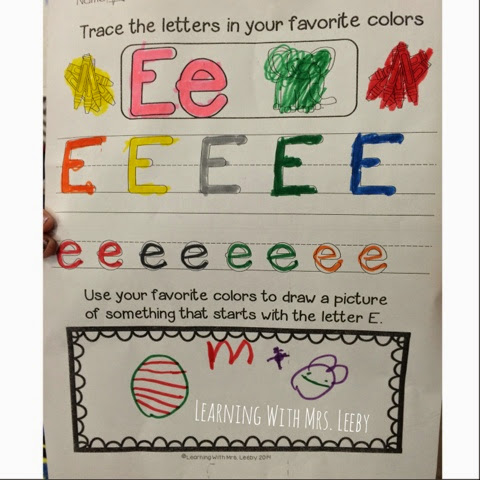 Trace the letters in your favorite colors
Ee
E E E E E
e e e e e e e e
Use your favorite colors to draw a picture
of something that starts with the letter E.
m
LEARNING WITH MRS. LEEBY
©Learning With Mrs. Leeby 2014